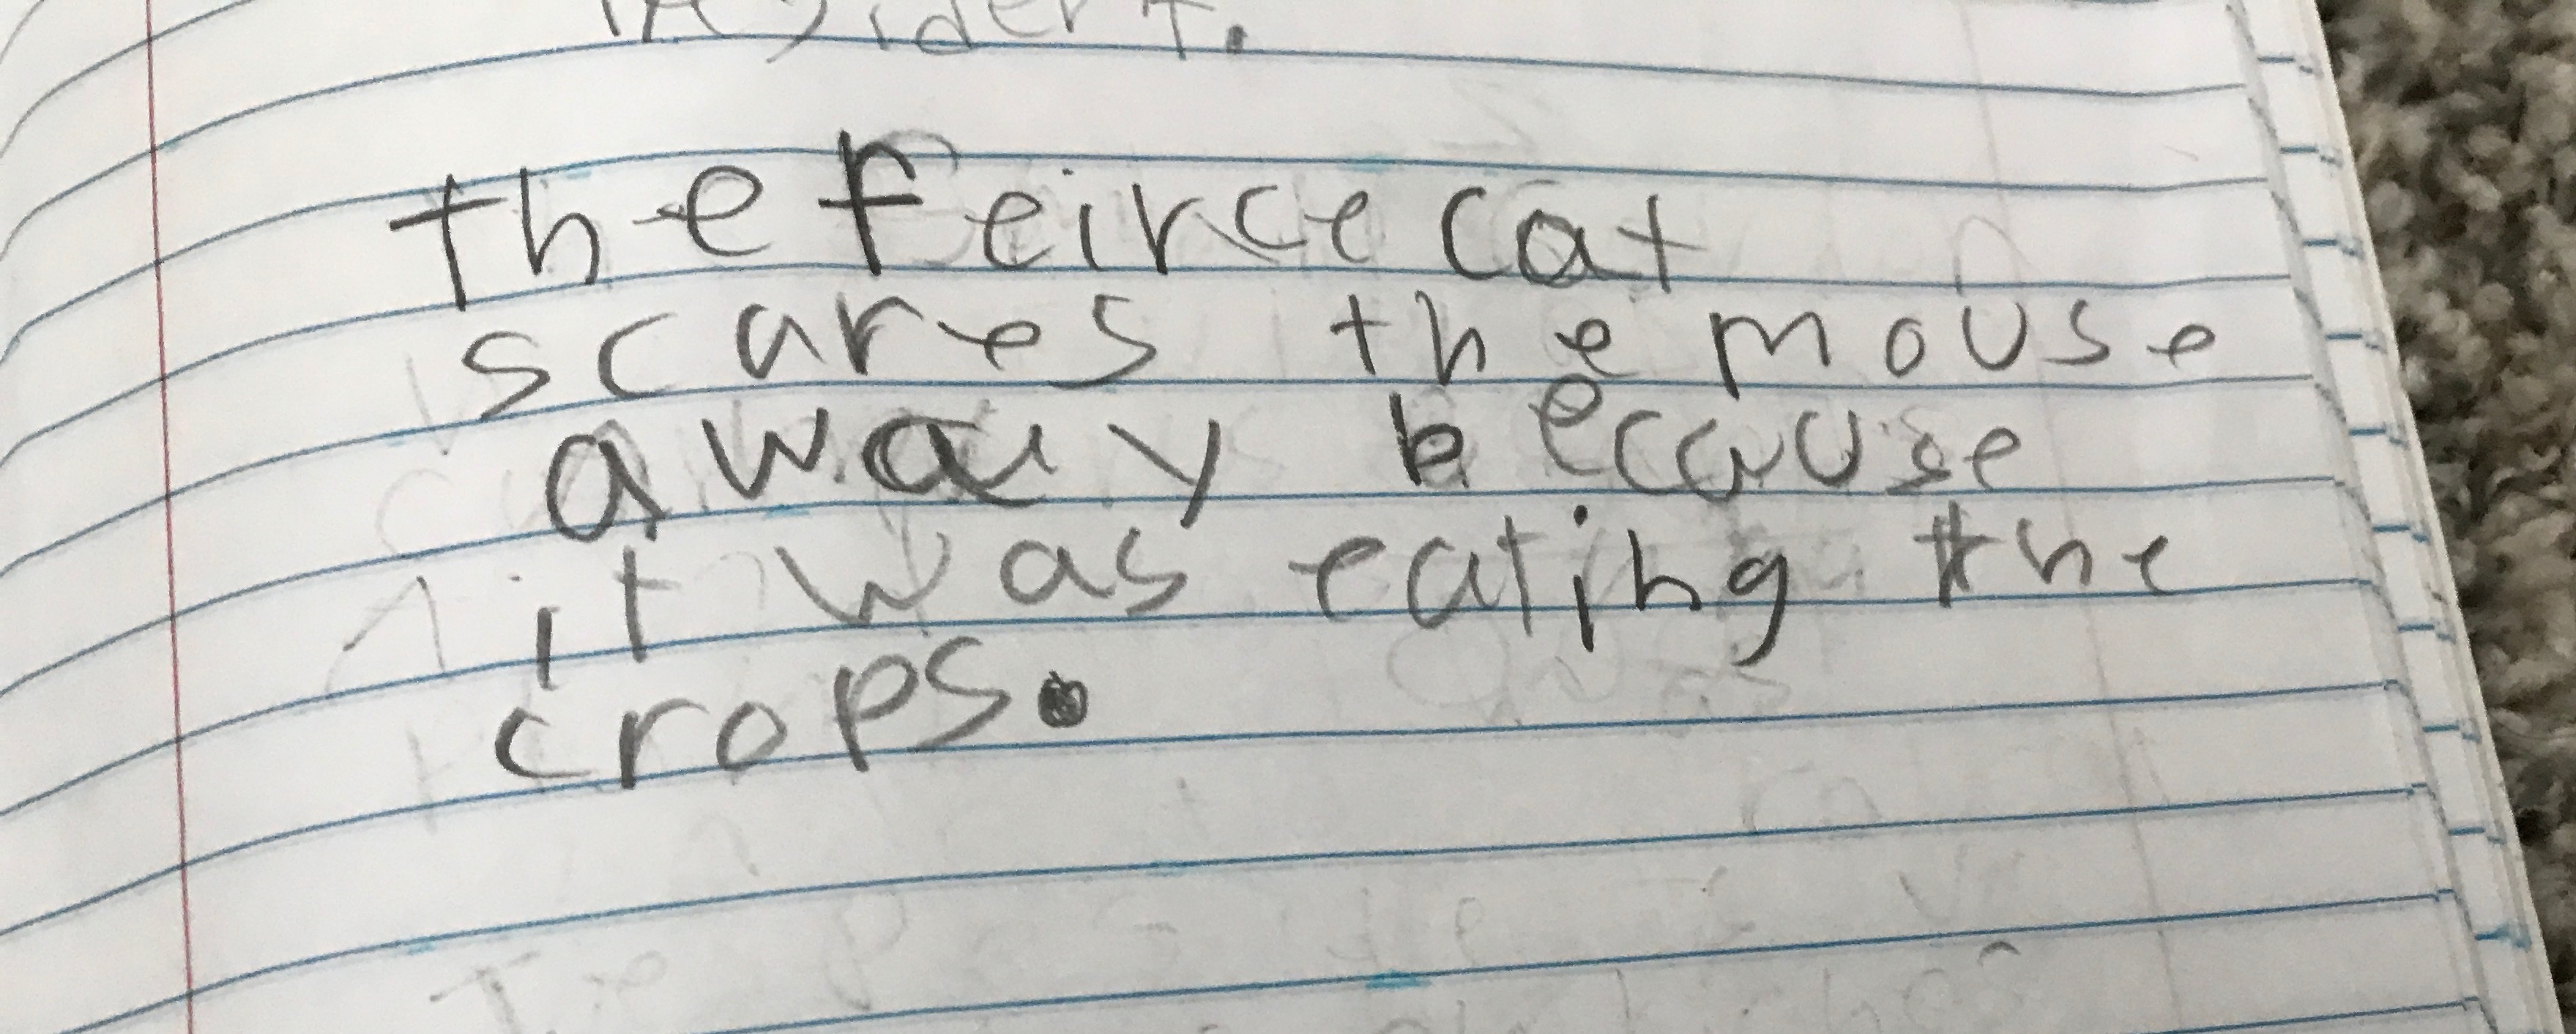 the feirce cat
scares the mouse
away because
it was eating the
crops.